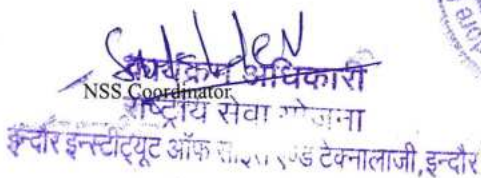 कार्यक्रम अधिकारी
NSS Coordinator
राष्ट्रीय सेवा योजना
इन्दौर इन्स्टीट्यूट ऑफ साइंस एण्ड टेक्नालाजी, इन्दौर